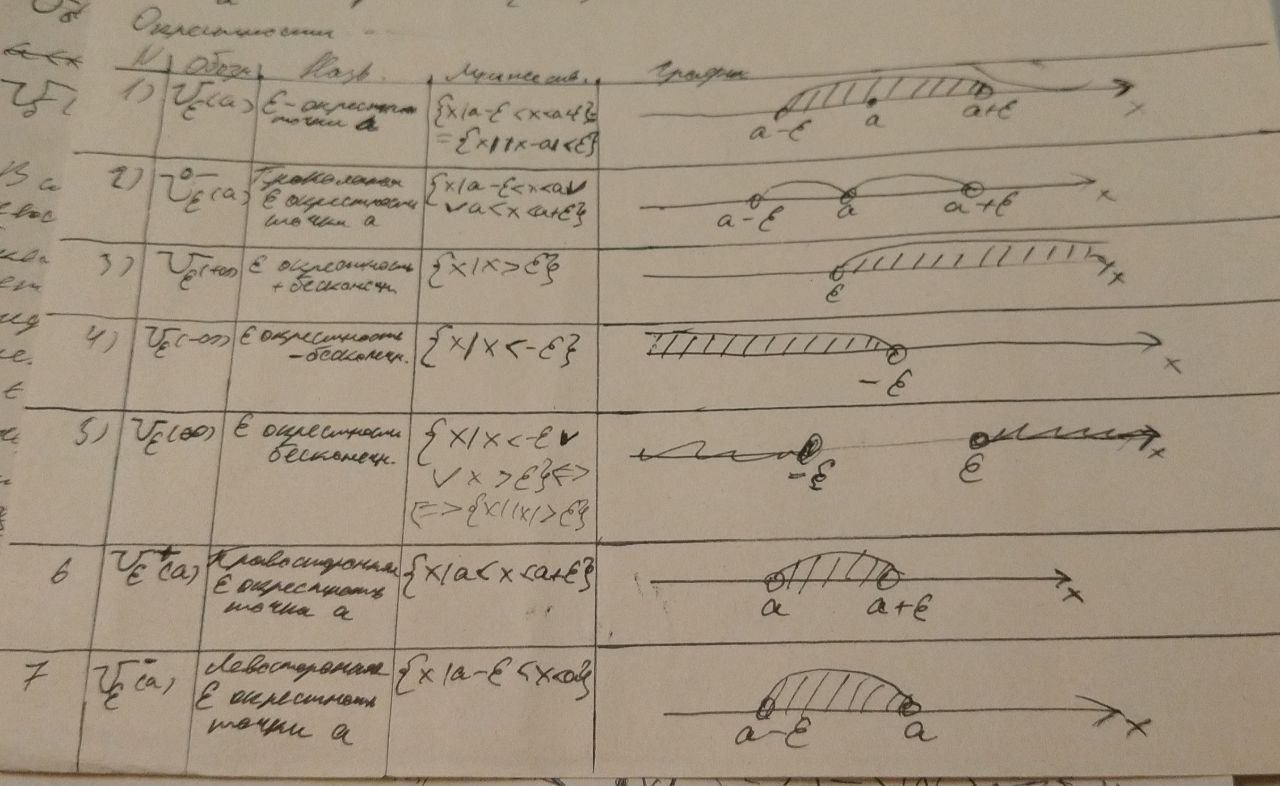 Окрестности
N Обозн. Назв. Множеств. График
1) U_ε(a) ε-окрестность точки a {x|a-ε<x<a+ε}= ={x||x-a|<ε} a-ε a a+ε x
2) Ů_ε(a) Проколотая ε окрестность точки a {x|a-ε<x<a∨ ∨a<x<a+ε} a-ε a a+ε x
3) U_ε(+∞) ε окрестность +бесконечн. {x|x>ε} ε x
4) U_ε(-∞) ε окрестность -бесконечн. {x|x<-ε} -ε x
5) U_ε(∞) ε окрестность бесконечн. {x|x<-ε∨ ∨x>ε}<=> <=>{x||x|>ε} -ε ε x
6 U_ε^+(a) Правосторонняя ε окрестность точка a {x|a<x<a+ε} a a+ε x
7 U_ε^-(a) Левосторонняя ε окрестность точки a {x|a-ε<x<a} a-ε a x